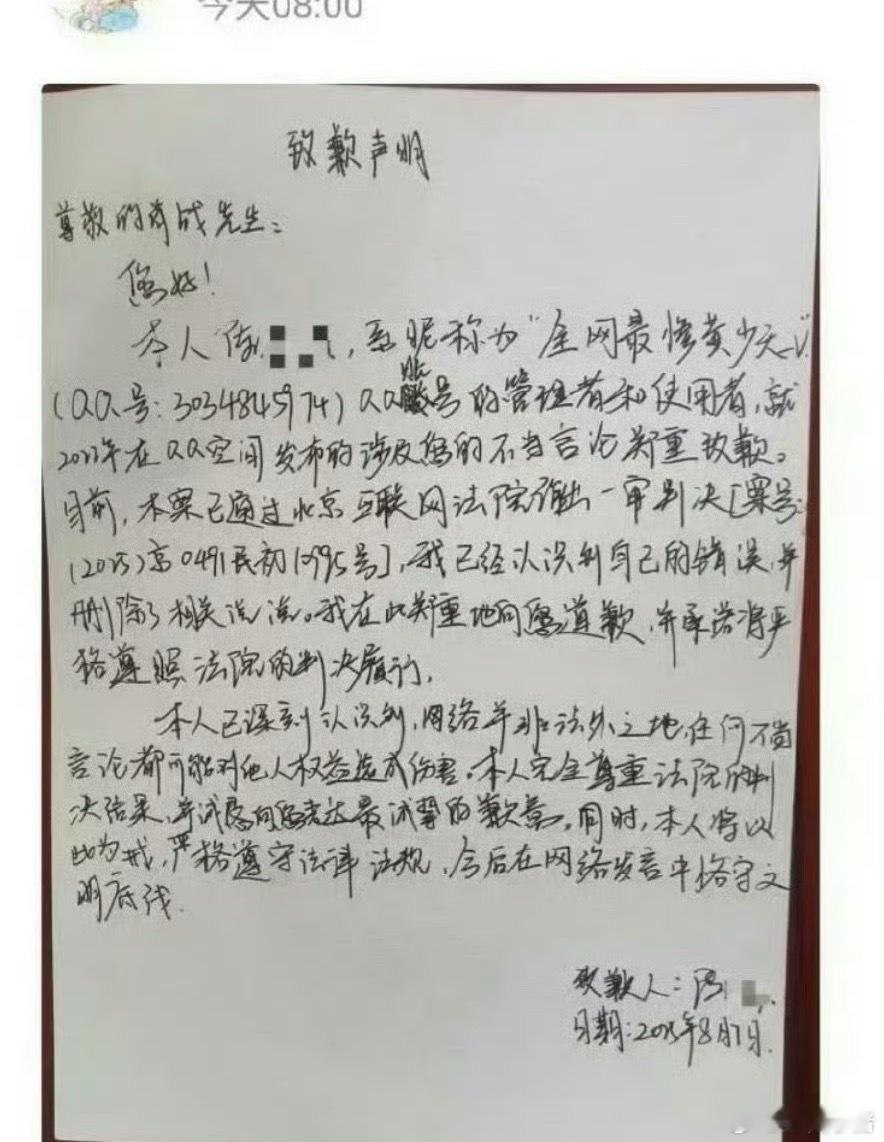 今天08:00
致歉声明
尊敬的肖战先生：
您好！
本人陈，系昵称为“全网最惨黄少天_V”
(QQ号：3034845974)QQ账号的管理者和使用者，就
2022年在QQ空间发布的涉及您的不当言论郑重致歉。
目前，本案已通过北京互联网法院作出一审判决[案号：
(2025)京0491民初10995号]，我已经认识到自己的错误，并
删除了相关说说。我在此郑重地向您道歉，并承诺将严
格遵照法院的判决履行。
本人已深刻认识到，网络并非法外之地，任何不当
言论都可能对他人权益造成伤害。本人完全尊重法院的判
决结果，并诚恳向您表达最诚挚的歉意。同时，本人将以
此为戒，严格遵守法律法规，今后在网络发言中恪守文
明底线.
致歉人：陈
日期：2025年8月7日.